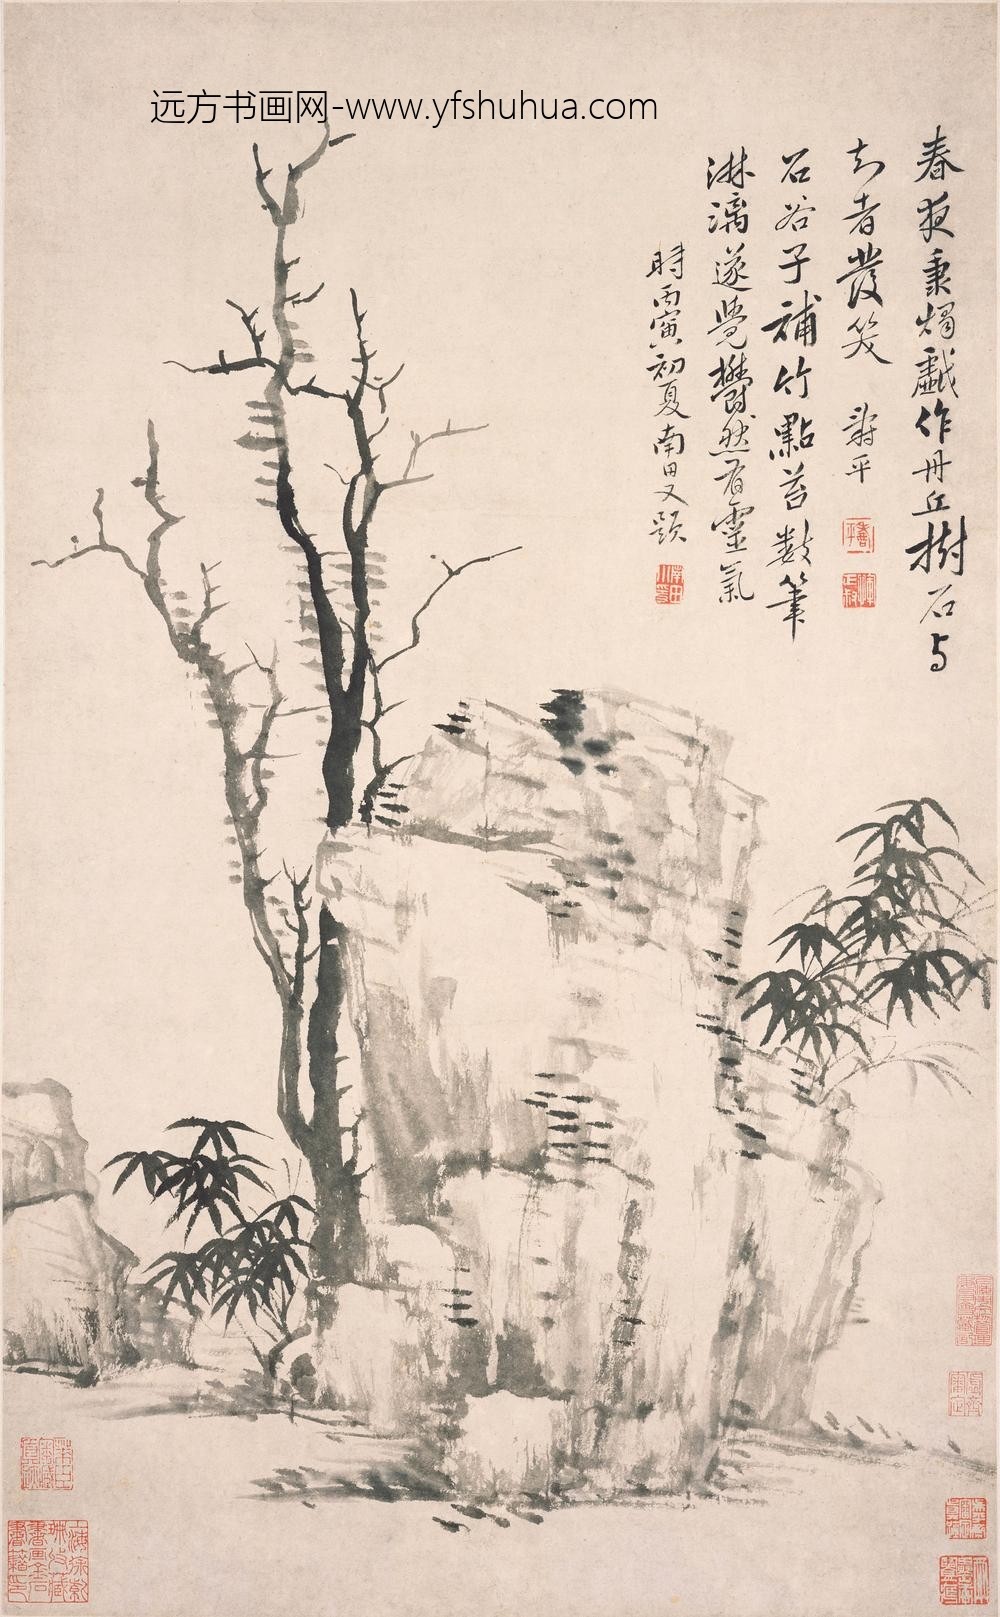 远方书画网-www.yfshuhua.com
春夜秉燭戲作丹丘樹石与
知者發笑 壽平
石谷子補竹點苔數筆
淋漓遂覺鬱然有靈氣
時丙寅初夏南田又題